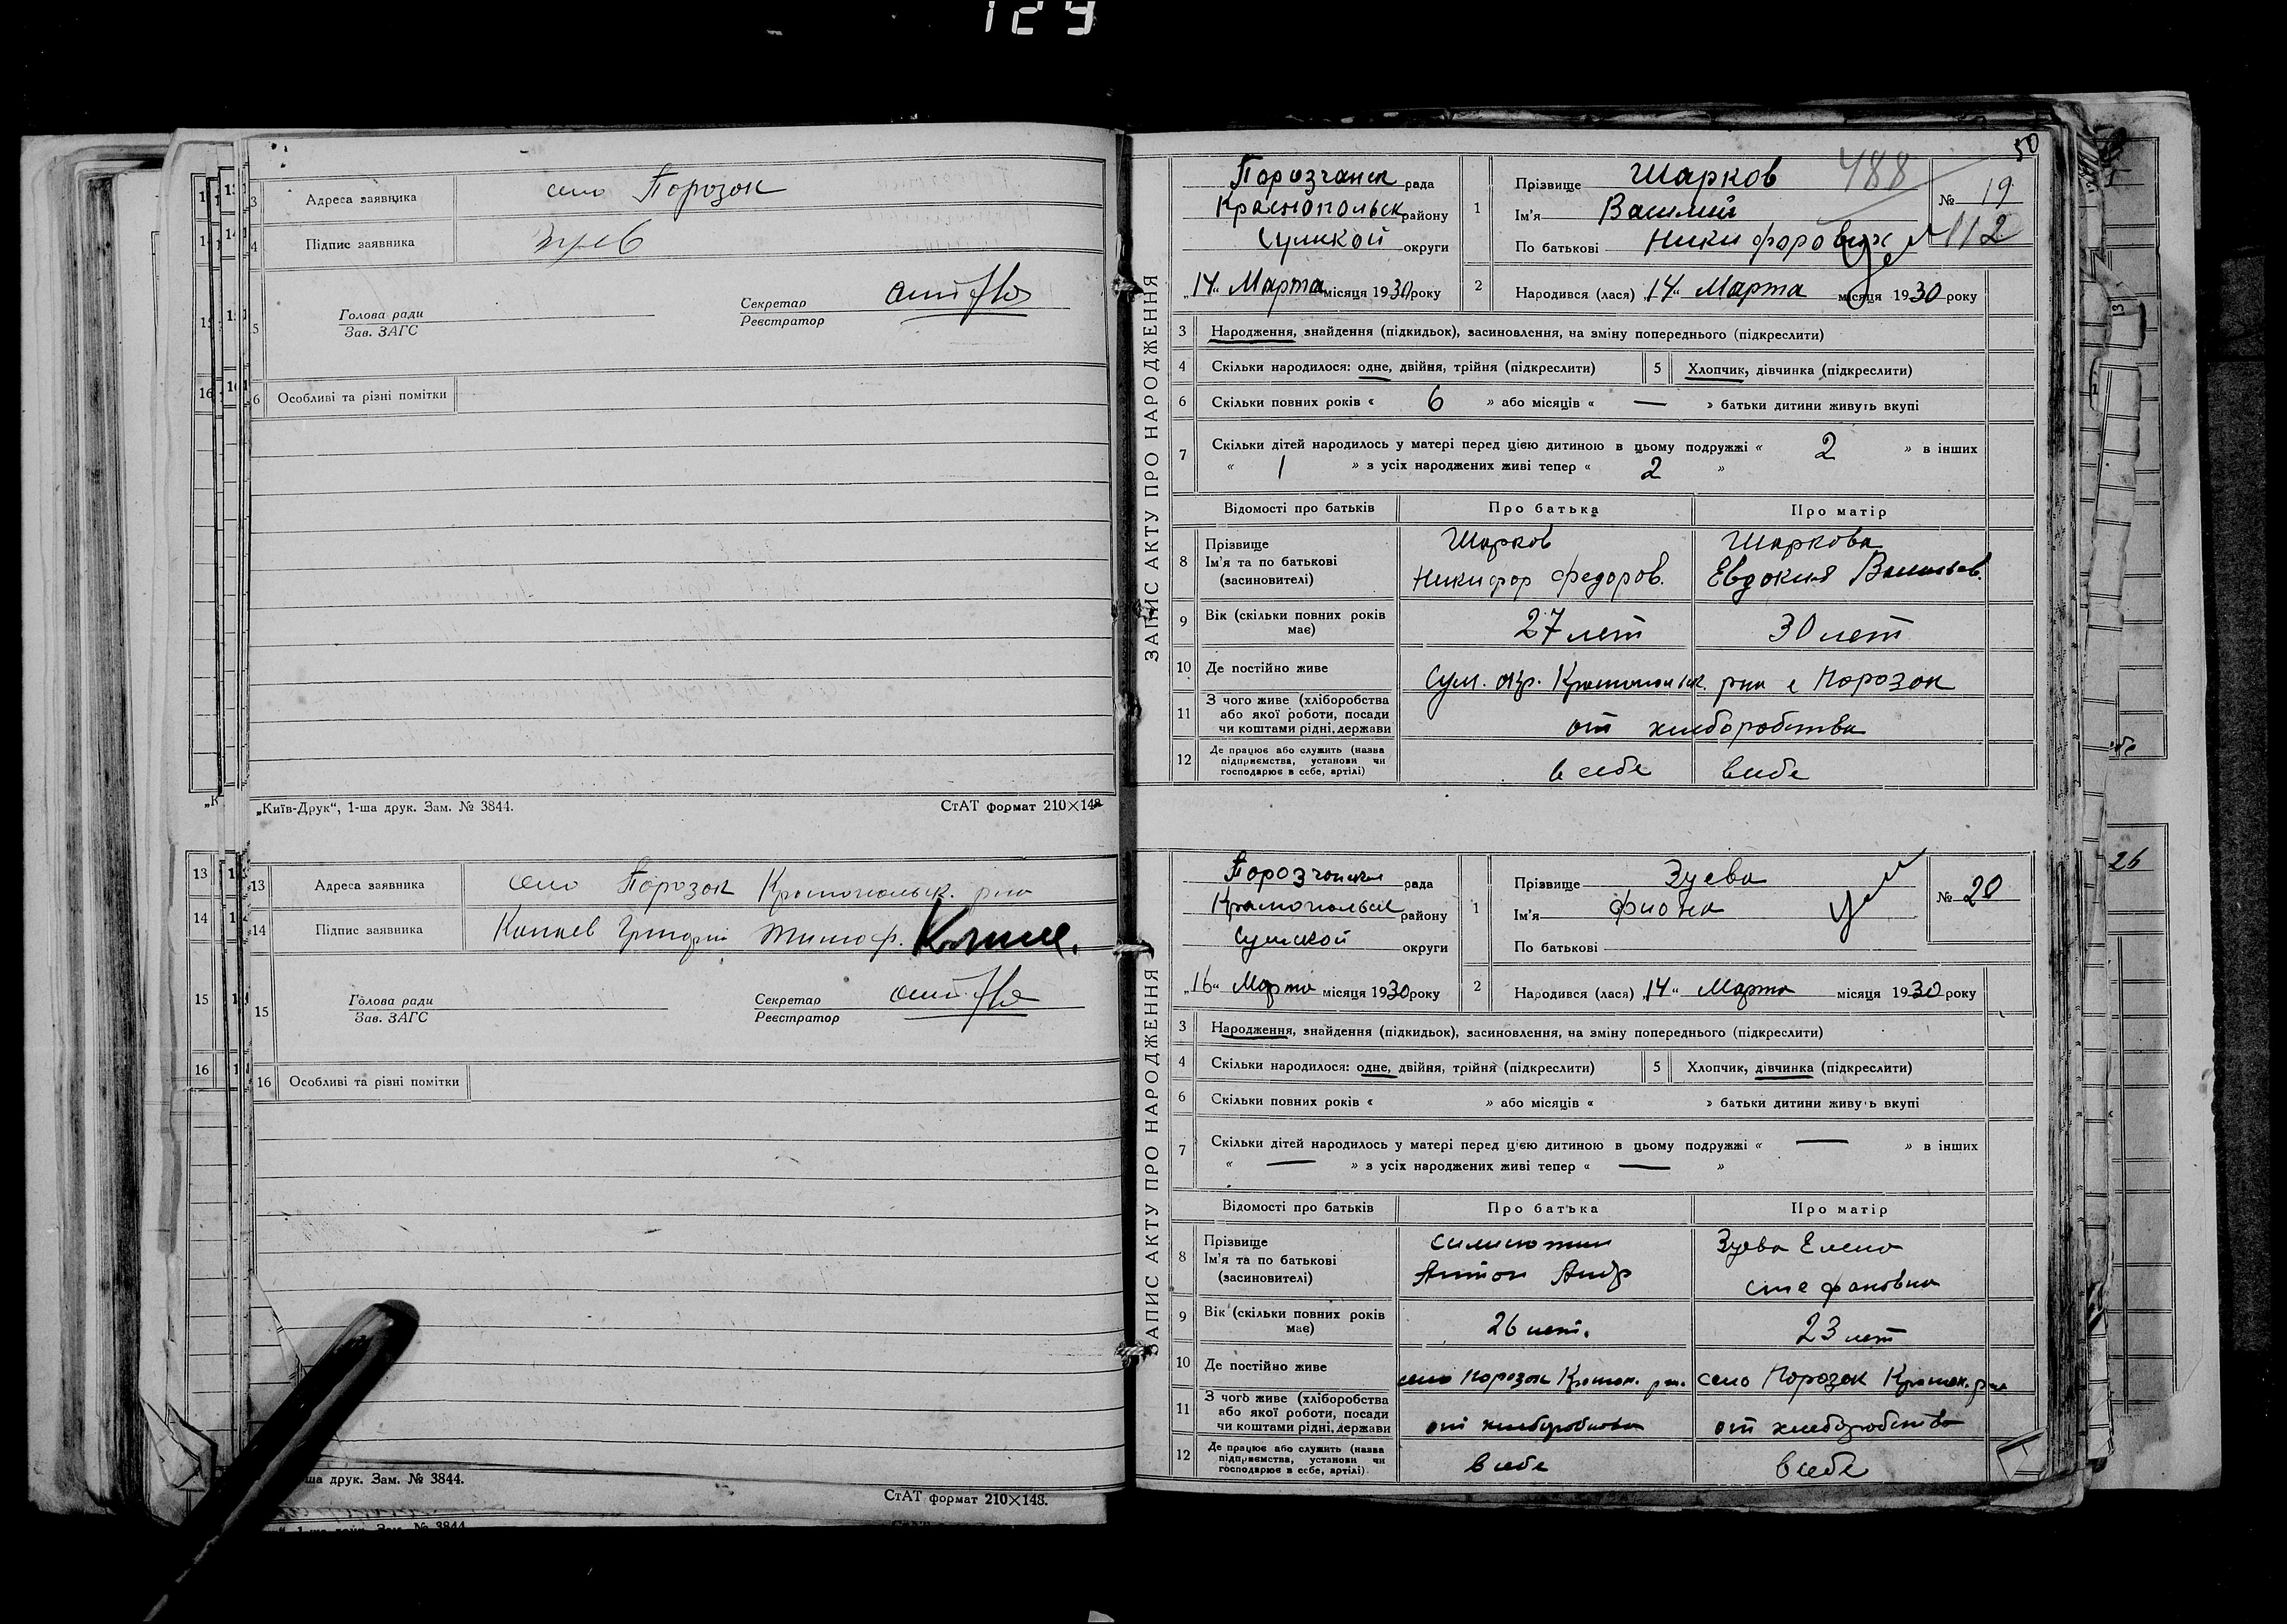 129
3 Адреса заявника село Порозок
4 Підпис заявника
5 Голова ради
Зав. ЗАГС
Секретар
Реєстратор
6 Особливі та різні помітки
„Київ-Друк“, 1-ша друк. Зам. № 3844.
СтАТ формат 210×148
13 Адреса заявника село Порозок Краснопольск. рна
14 Підпис заявника Григорий Тимоф.
15 Голова ради
Зав. ЗАГС
Секретар
Реєстратор
16 Особливі та різні помітки
ша друк. Зам. № 3844.
СтАТ формат 210×148.
50
ЗАПИС АКТУ ПРО НАРОДЖЕННЯ
Порозчанск рада
Краснопольск району
Сумской округи
„14“ Марта місяця 1930 року
1 Прізвище Шарков
488
Ім'я Василий
По батькові Никифорович
Ум
№ 19
112
2 Народився (лася) „14“ Марта місяця 1930 року
3 Народження, знайдення (підкидьок), засиновлення, на зміну попереднього (підкреслити)
4 Скільки народилося: одне, двійня, трійня (підкреслити) 5 Хлопчик, дівчинка (підкреслити)
6 Скільки повних років « 6 » або місяців « — » батьки дитини живуть вкупі
7 Скільки дітей народилось у матері перед цією дитиною в цьому подружжі « 2 » в інших
« 1 » з усіх народжених живі тепер « 2 »
Відомості про батьків Про батька Про матір
8 Прізвище Шарков Шаркова
Ім'я та по батькові Никифор Федоров. Евдокия Васильев.
(засиновителі)
9 Вік (скільки повних років має) 27 лет 30 лет
10 Де постійно живе Сум. окр. Краснопольск. рна с Порозок
11 З чого живе (хліборобства
або якої роботи, посади
чи коштами рідні, держави от хлеборобства
12 Де працює або служить (назва
підприємства, установи чи
господарює в себе, артілі) в себе в себе
ЗАПИС АКТУ ПРО НАРОДЖЕННЯ
Порозчанская рада
Краснопольск району
Сумской округи
„16“ Марта місяця 1930 року
1 Прізвище Зуева
Ім'я Фиона
По батькові
Ум
№ 20
2 Народився (лася) „14“ Марта місяця 1930 року
3 Народження, знайдення (підкидьок), засиновлення, на зміну попереднього (підкреслити)
4 Скільки народилося: одне, двійня, трійня (підкреслити) 5 Хлопчик, дівчинка (підкреслити)
6 Скільки повних років « » або місяців « » батьки дитини живуть вкупі
7 Скільки дітей народилось у матері перед цією дитиною в цьому подружжі « — » в інших
« — » з усіх народжених живі тепер « — »
Відомості про батьків Про батька Про матір
8 Прізвище Зуева Елена
Ім'я та по батькові Антон Андр Стефановна
(засиновителі)
9 Вік (скільки повних років має) 26 лет. 23 лет
10 Де постійно живе село Порозок Красноп. рн. село Порозок Красноп. рна
11 З чого живе (хліборобства
або якої роботи, посади
чи коштами рідні, держави от хлеборобства от хлеборобства
12 Де працює або служить (назва
підприємства, установи чи
господарює в себе, артілі) в себе в себе
26